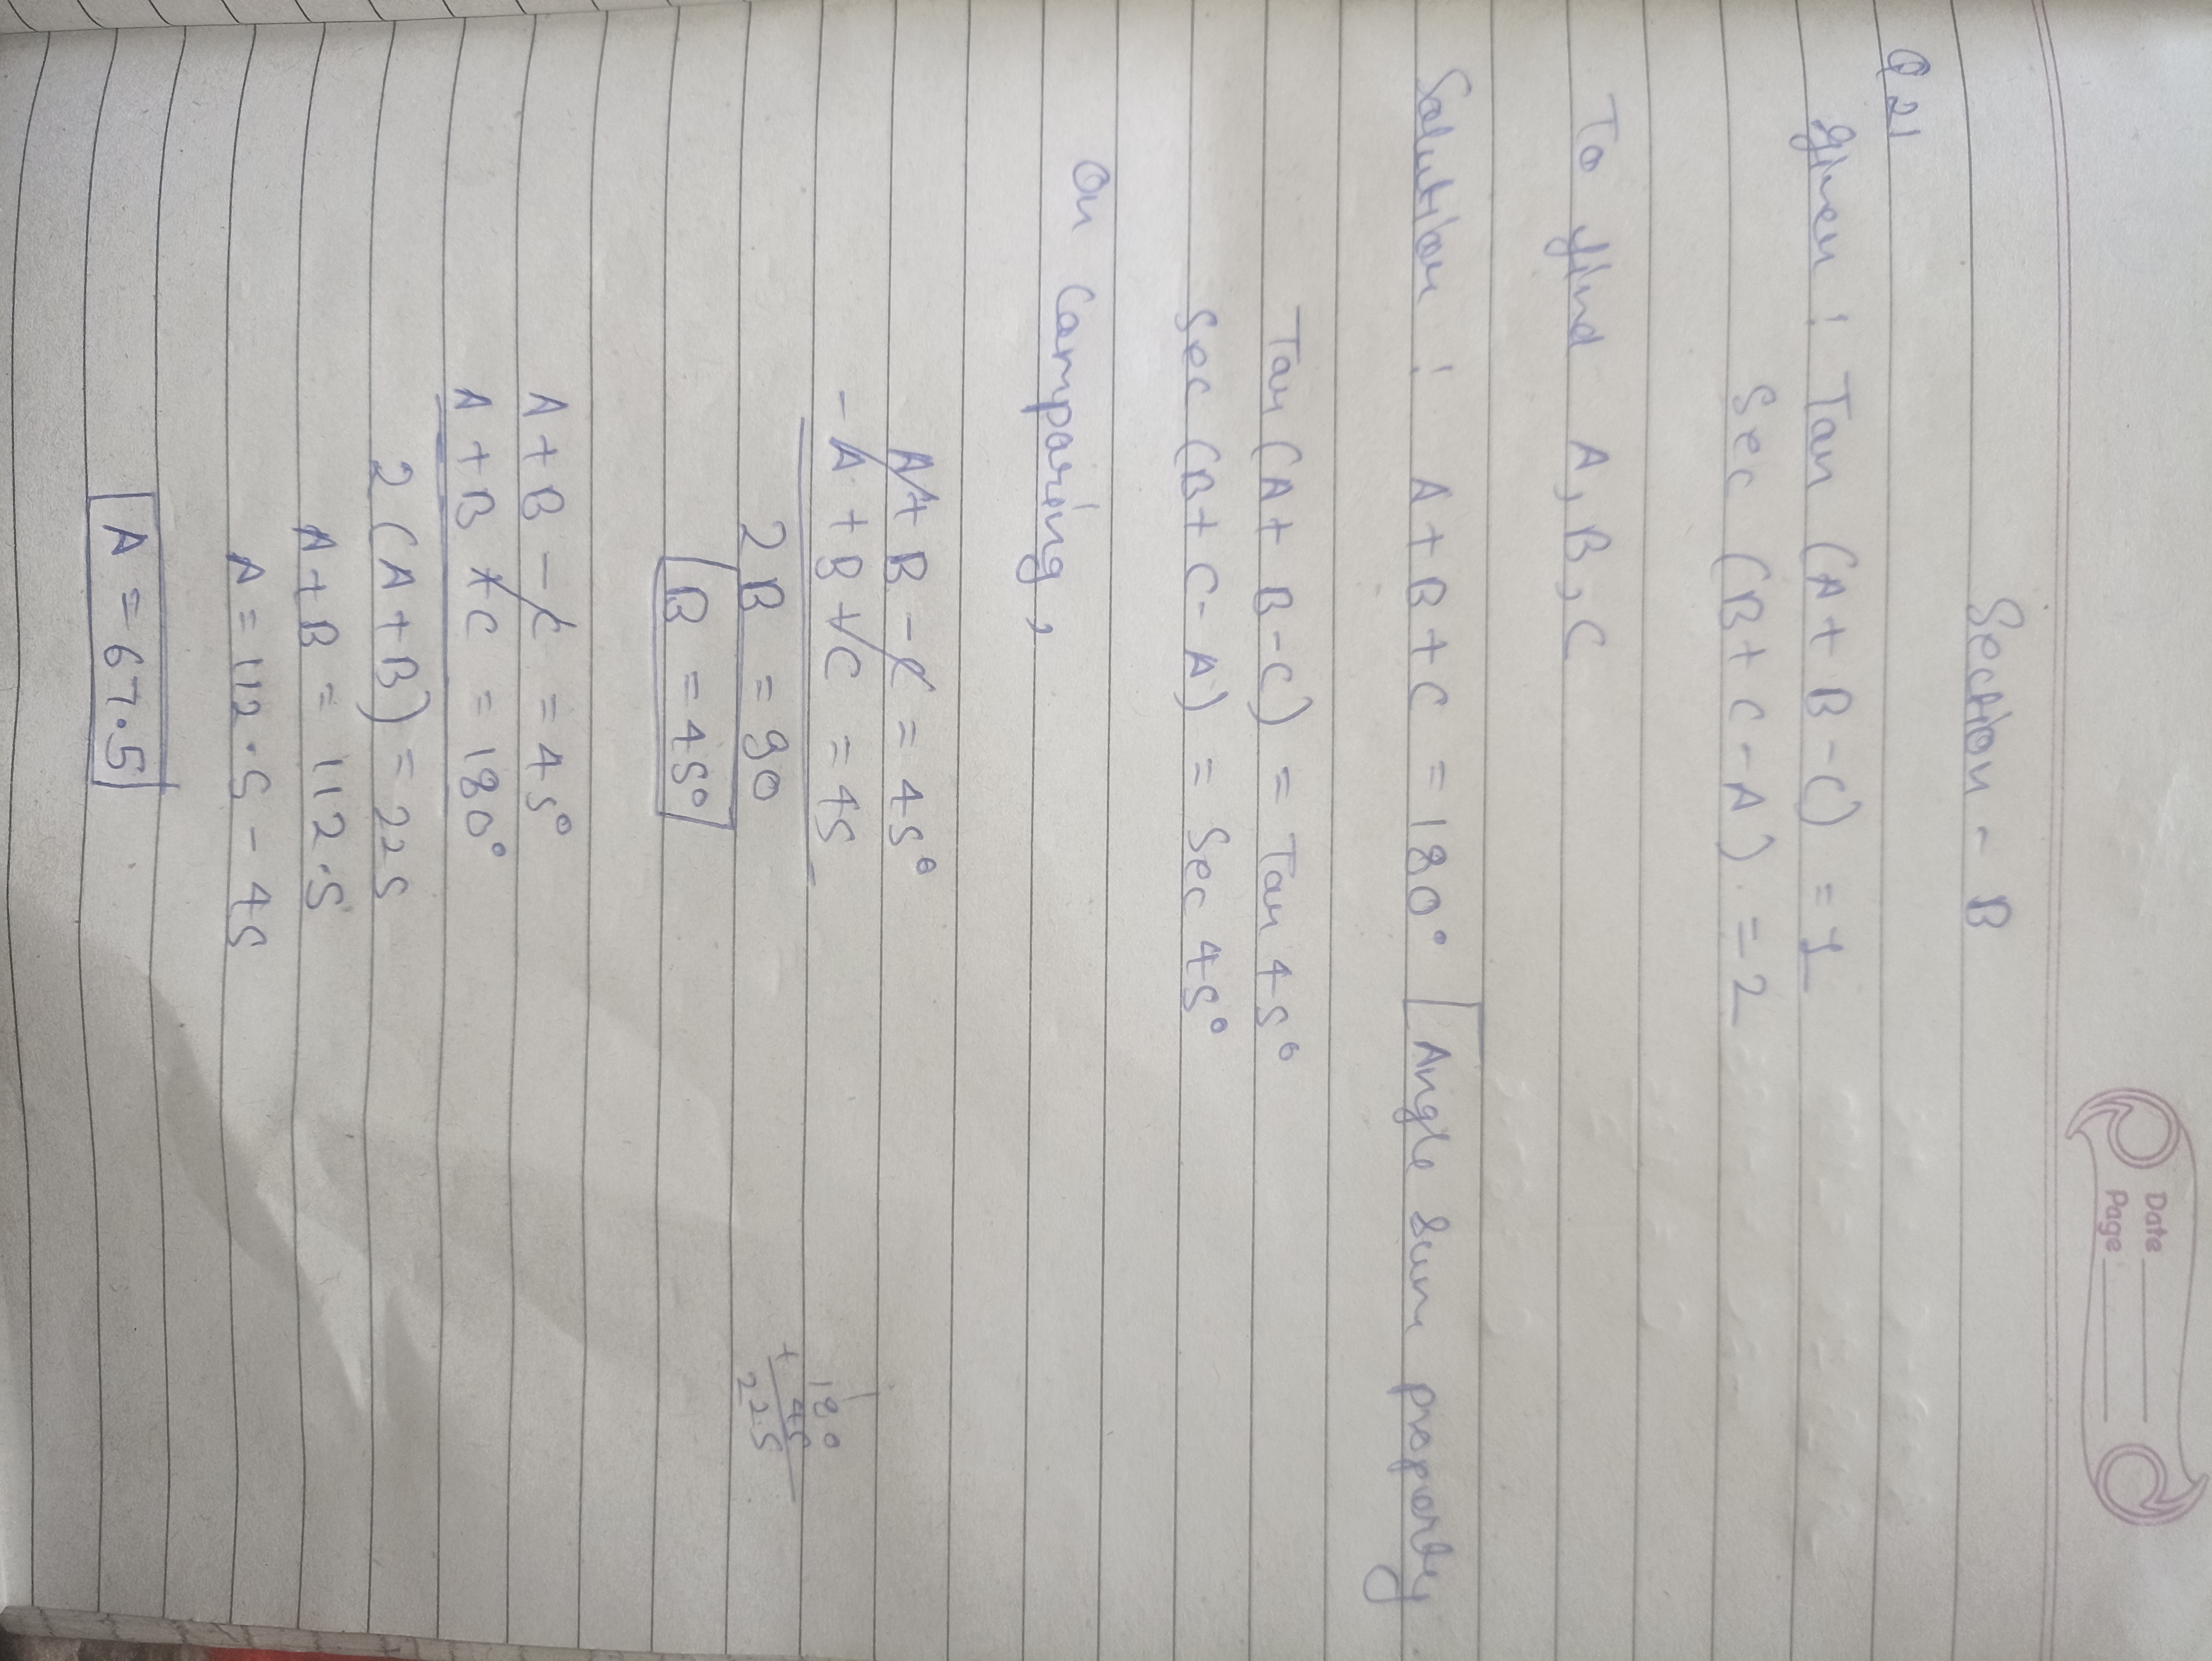 Date
Page
Section - B
Q 21
Given : Tan (A + B - C) = 1
Sec (B + C - A) = 2
To find A, B, C
Solution : A + B + C = 180° [Angle sum property
Tan (A + B - C) = Tan 45°
Sec (B + C - A) = Sec 45°
On Comparing,
A + B - C = 45°
- A + B + C = 45
2B = 90
B = 45°
180
+ 45
225
A + B - C = 45°
A + B + C = 180°
2 (A + B) = 225
A + B = 112.5
A = 112.5 - 45
A = 67.5